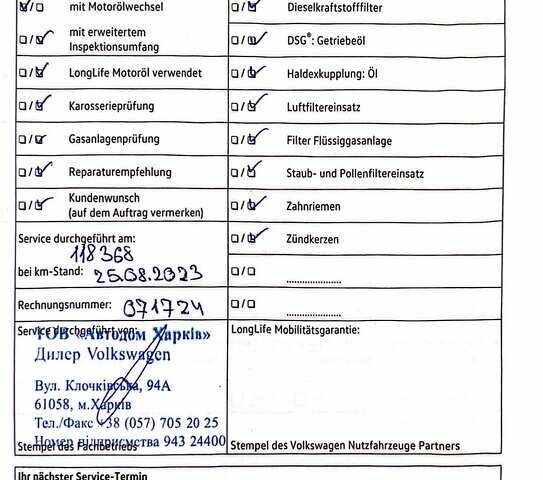 mit Motorölwechsel
mit erweitertem
Inspektionsumfang
LongLife Motoröl verwendet
Karosserieprüfung
Gasanlagenprüfung
Reparaturempfehlung
Kundenwunsch
(auf dem Auftrag vermerken)
Service durchgeführt am:
118368
bei km-Stand: 25.08.2023
Rechnungsnummer: 071724
Service durchgeführt von:
ТОВ «Автодом Харків»
Дилер Volkswagen
Вул. Клочківська, 94А
61058, м.Харків
Тел./Факс +38 (057) 705 20 25
Номер підприємства 943 24400
Stempel des Fachbetriebs
Dieselkraftstofffilter
DSG®: Getriebeöl
Haldexkupplung: Öl
Luftfiltereinsatz
Filter Flüssiggasanlage
Staub- und Pollenfiltereinsatz
Zahnriemen
Zündkerzen
LongLife Mobilitätsgarantie:
Stempel des Volkswagen Nutzfahrzeuge Partners
Ihr nächster Service-Termin